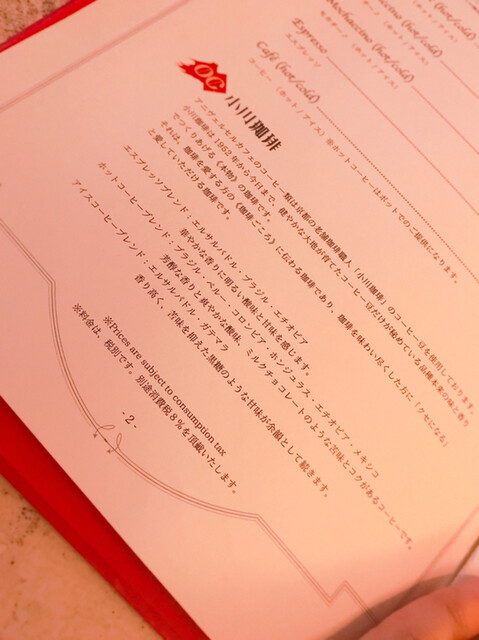 Mochaccino (hot/cold)
モカチーノ (ホット/アイス)
Espresso
エスプレッソ
Café (hot/cold)
コーヒー (ホット/アイス) ※ホットコーヒーはポットでのご提供になります。
OC
小川珈琲
アニヴェルセルカフェのコーヒー類は京都の老舗珈琲職人「小川珈琲」のコーヒー豆を使用しております。
小川珈琲は1952年から今日まで、健やかな大地が育てたコーヒー豆だけが秘めている品種本来の味と香り
でつくりあげる《本物》の珈琲です。
それは、珈琲を愛する方の《珈琲ごころ》に伝わる珈琲であり、珈琲を味わい尽くした方に「クセになる」
と愛していただける珈琲です。
エスプレッソブレンド:エルサルバドル・ブラジル・エチオピア
華やかな香りに明るい酸味と甘味を感じます。
ホットコーヒーブレンド:ブラジル・ペルー・コロンビア・ホンジュラス・エチオピア・メキシコ
芳醇な香りと爽やかな酸味、ミルクチョコレートのような苦味とコクがあるコーヒーです。
アイスコーヒーブレンド:エルサルバドル・ガテマラ
香り高く、苦味を抑えた黒糖のような甘味が余韻として続きます。
※Prices are subject to consumption tax
※料金は、税別です。別途消費税8%を頂戴いたします。
- 2 -